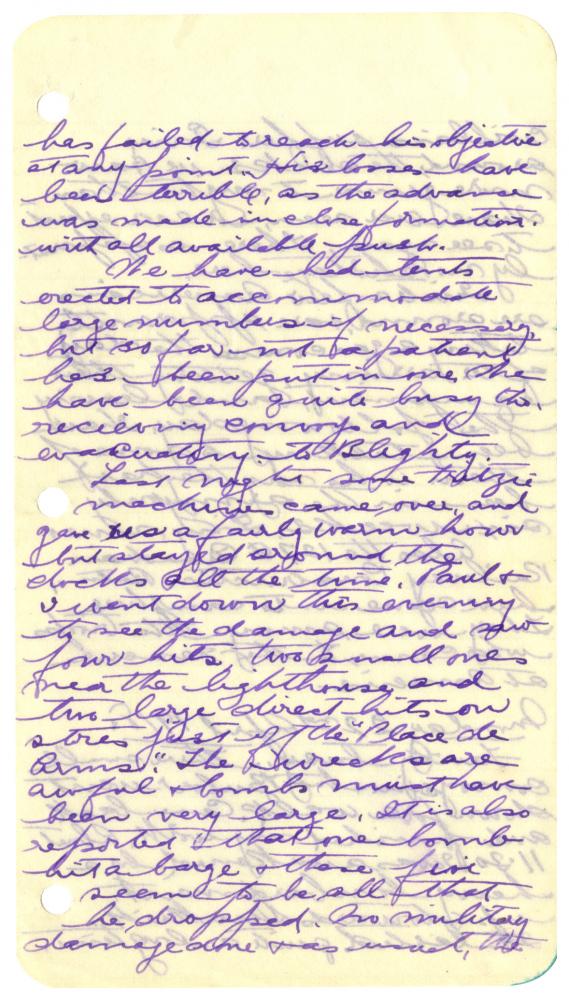 has failed to reach his objective
at any point. His losses have
been terrible, as the advance
was made in close formation.
with all available push.
We have had tents
erected to accommodate
large numbers if necessary,
but so far not a patient
has been put in one. We
have been quite busy tho.
recieving convoys and
evacuating to Blighty.
Last night some
machines came over, and
gave us a fairly warm hour
but stayed around the
docks all the time. Paul &
I went down this evening
to see the damage and saw
four hits, two small ones
near the lighthouse, and
two large direct hits on
stores just off the "Place de
Arms." The wrecks are
awful & bombs must have
been very large. It is also
reported that one bomb
hit a barge & those five
seem to be all that
he dropped. No military
damage done & as usual, the